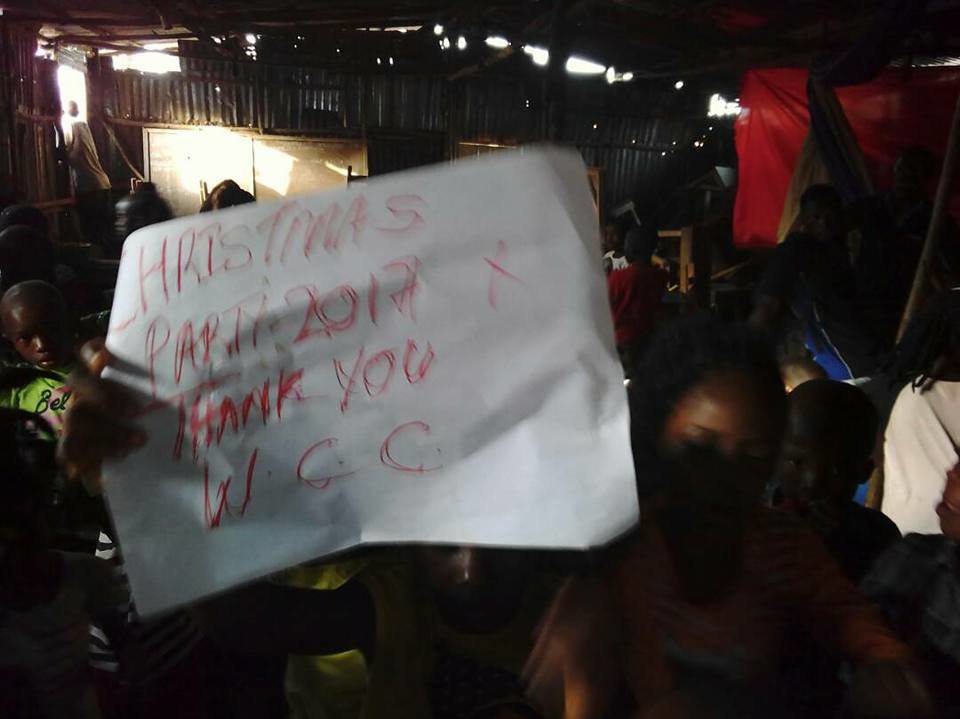 CHRISTMAS
PARTY. 2017 X
THANK YOU
W. C. C.
Bel